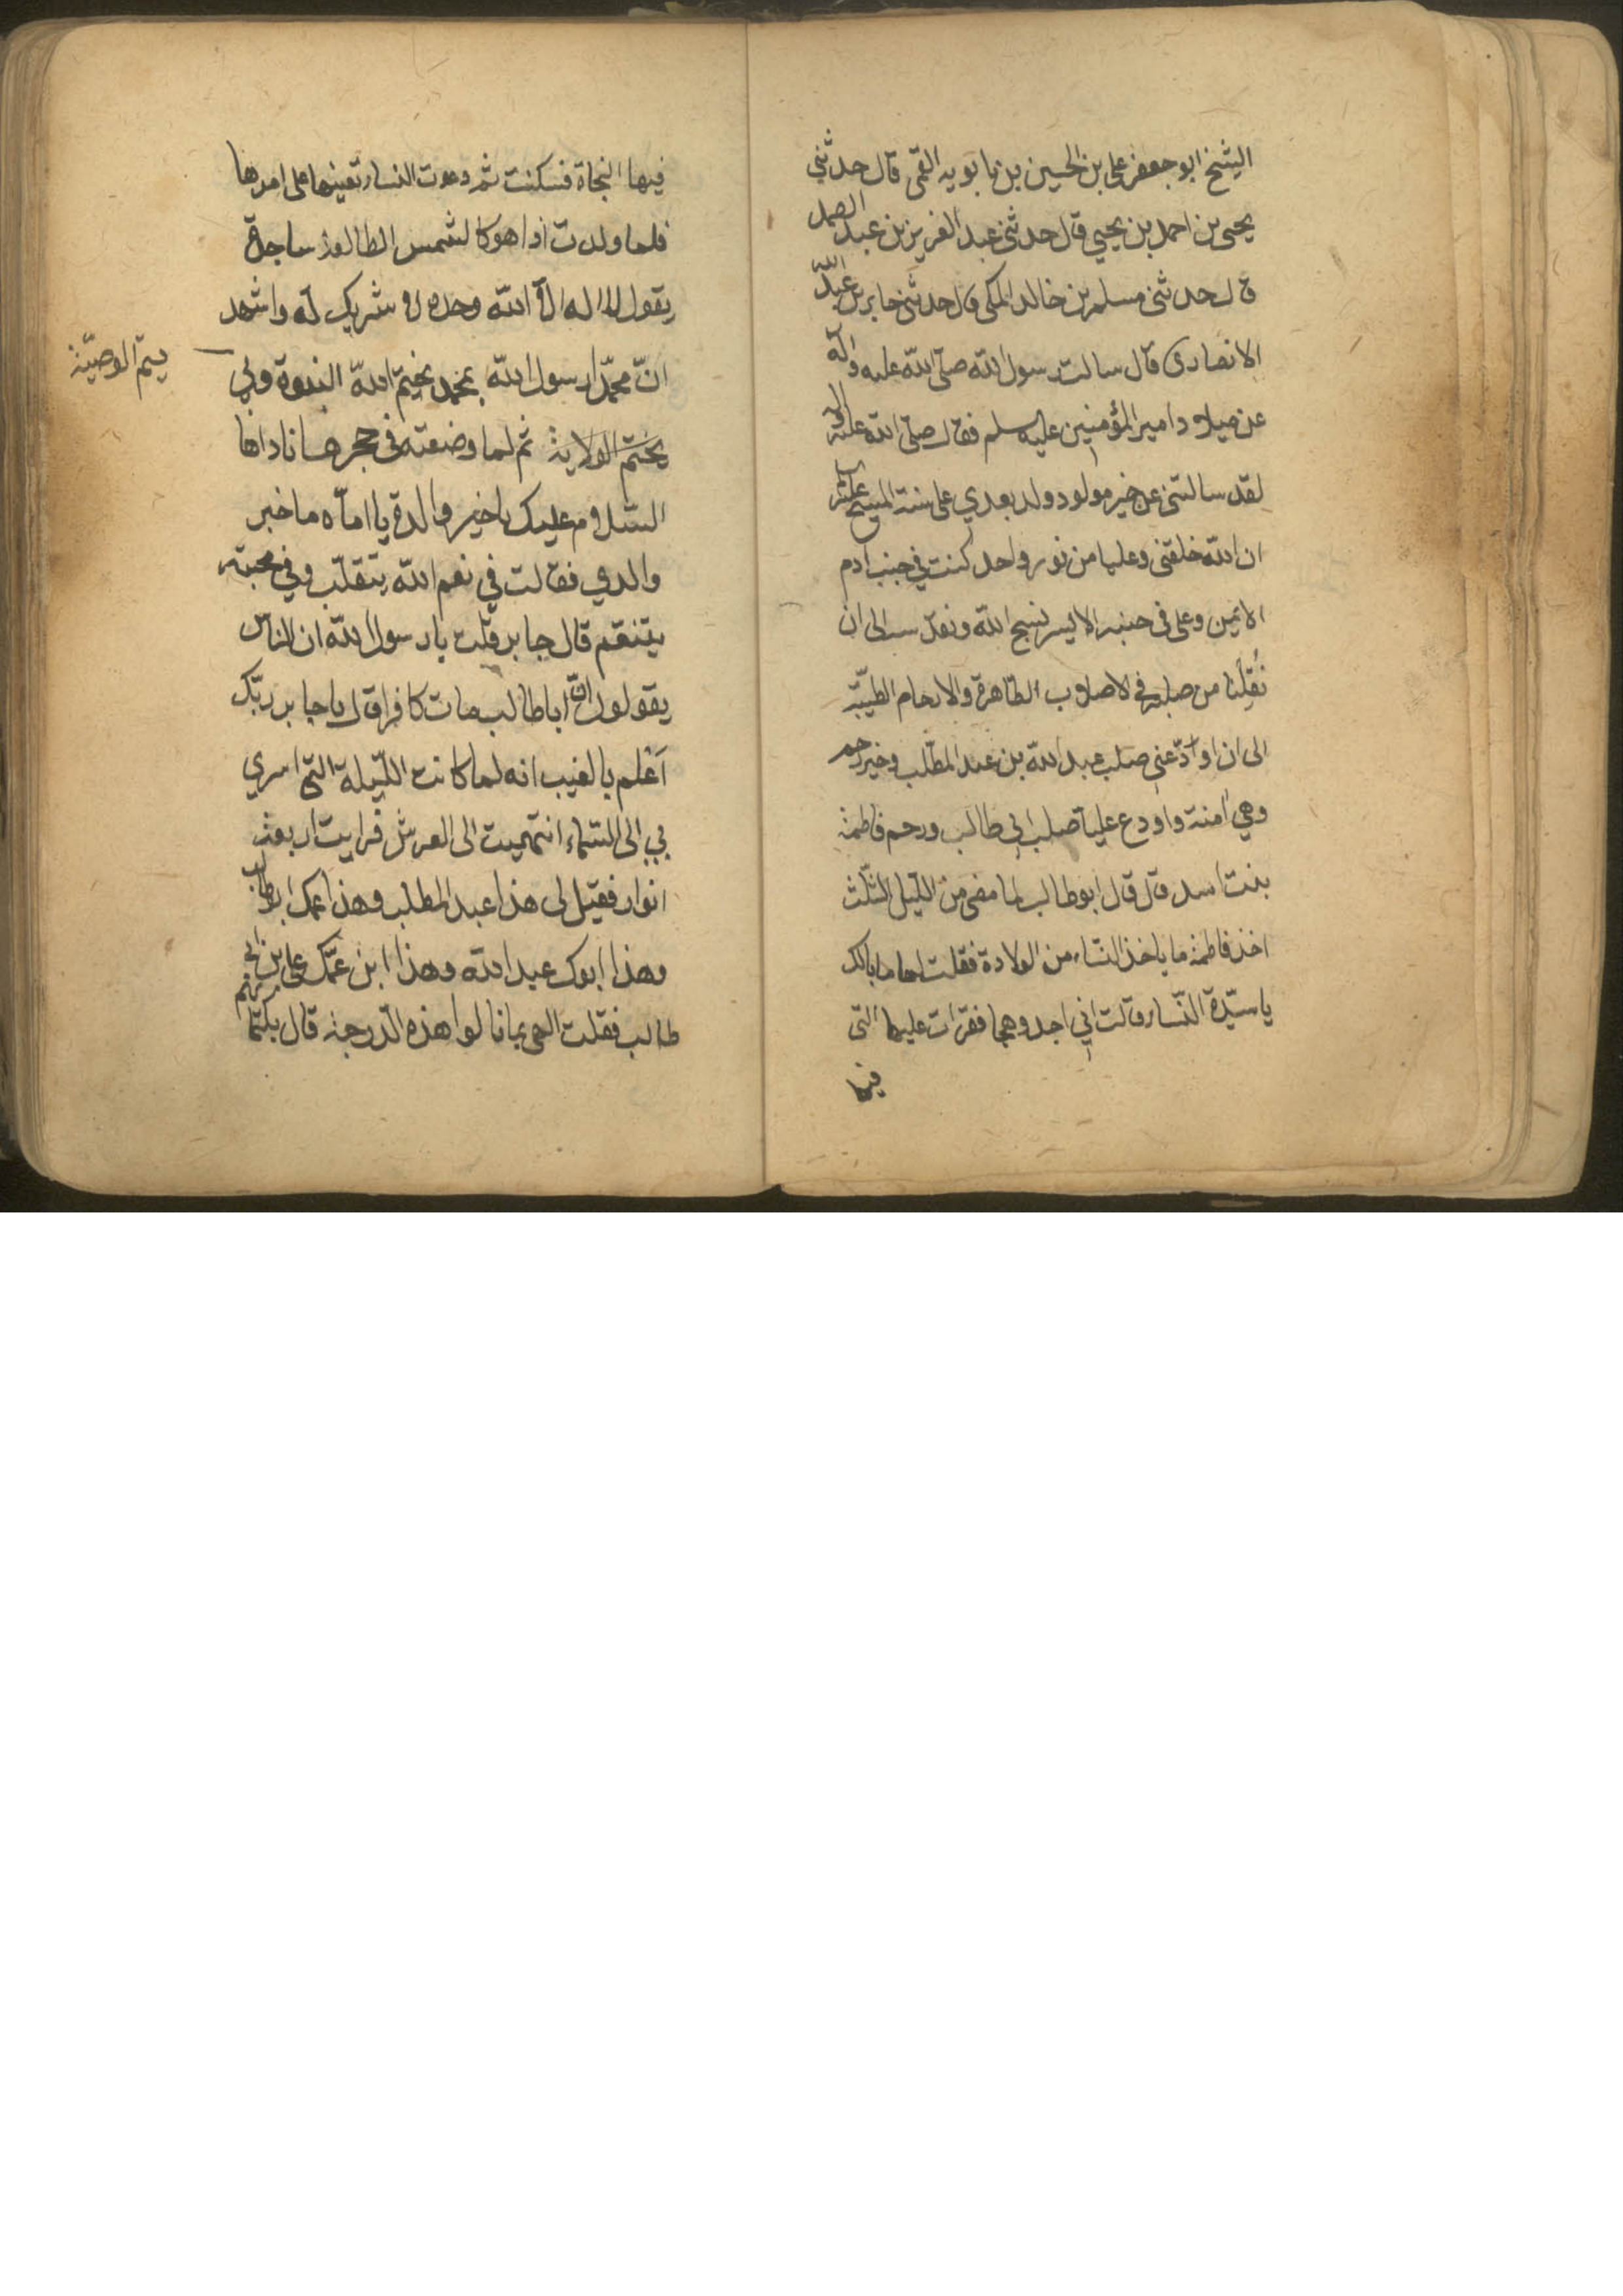 الشيخ ابو جعفر علي بن الحسين بن بابويه القمى قال حدثني
يحيى بن احمد بن يحيي قال حدثنى عبد العزيز بن عبد الصمد
قال حدثنى مسلم بن خالد المكى قال حدثنى جابر بن عبد الله
الانصارى قال سالت رسول الله صلى الله عليه واله
عن ميلاد امير المؤمنين عليه سلم فقال صلى الله عليه واله
لقد سالتنى عن خير مولود ولد بعدي على سنة المسيح عليه السلم
ان الله خلقنى وعليا من نور واحد كنت في جنب ادم
الايمن وعلى فى جنبه الايسر نسبح الله ونقدسه الى ان
نقلنا من صلبه في الاصلاب الطاهرة والارحام الطيبة
الى ان اودعنى صلب عبد الله بن عبد المطلب وخير رحم
وهي امنة واودع عليا صلب ابي طالب ورحم فاطمة
بنت اسد قال قال ابو طالب لما مضى من الليل الثلث
اخذ فاطمة ما ياخذ النساء من الولادة فقلت لها ما بالك
يا سيدة النساء قالت اني اجد وهجا فقرات عليها التى
فيها
فيها النجاة فسكنت ثم دعوت النساء تعينها على امرها
فلما ولدت اذا هو كالشمس الطالعة ساجدة
يقول لا اله الا الله وحده لا شريك له واشهد
انّ محمّدا رسول الله بمحمد يختم الله النبوة وبي
يتم الوصيّة
يختم الولاية ثم لما وضعته فى حجرها ناداها
السلام عليك يا خير والدة يا اماه ما خبر
والدي فقالت في نعم الله يتقلب وفي محبته
يتنعم قال جابر قلت يا رسول الله ان الناس
يقولون انّ ابا طالب مات كافرا قال يا جابر ربّك
اعلم بالغيب انه لما كانت الليلة التى اسري
بي الى السماء انتهيت الى العرش فرايت اربعة
انوار فقيل لى هذا عبد المطلب وهذا عمك ابو طالب
وهذا ابوك عبد الله وهذا ابن عمّك على بن ابي
طالب فقلت الهى بما نالوا هذه الدرجة قال بكتمانهم